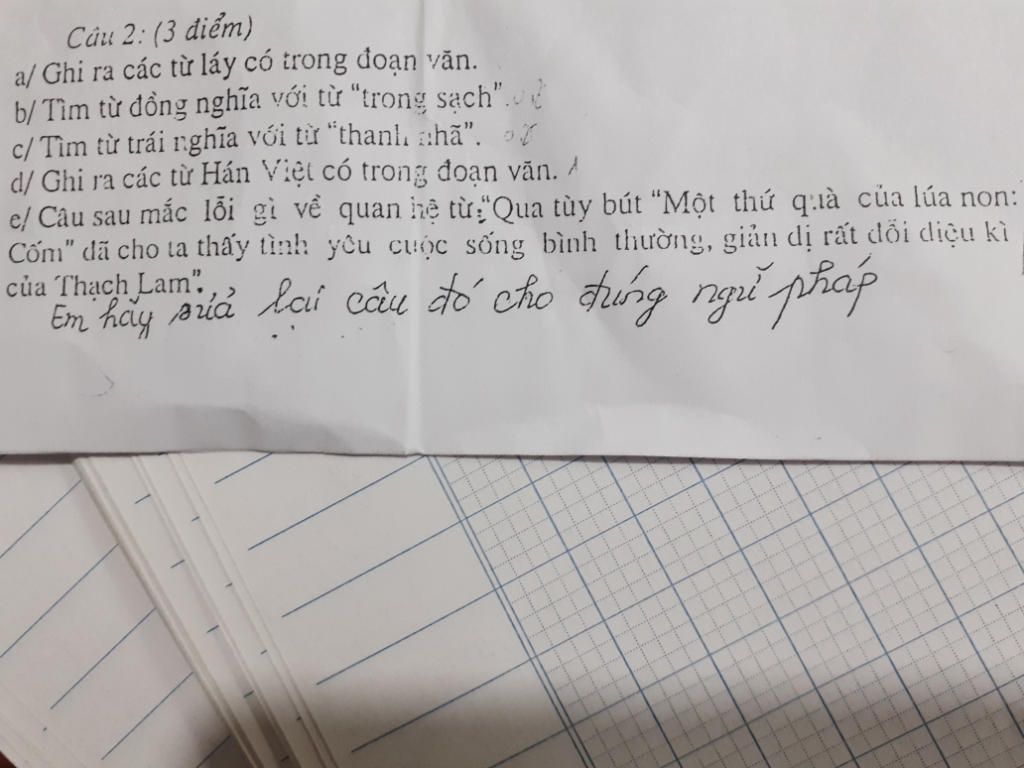 Câu 2: (3 điểm)
a/ Ghi ra các từ láy có trong đoạn văn.
b/ Tìm từ đồng nghĩa với từ "trong sạch".
c/ Tìm từ trái nghĩa với từ "thanh nhã".
d/ Ghi ra các từ Hán Việt có trong đoạn văn.
e/ Câu sau mắc lỗi gì về quan hệ từ: "Qua tùy bút "Một thứ quà của lúa non:
Cốm" đã cho ta thấy tình yêu cuộc sống bình thường, giản dị rất đỗi diệu kì
của Thạch Lam".
Em hãy sửa lại câu đó cho đúng ngữ pháp